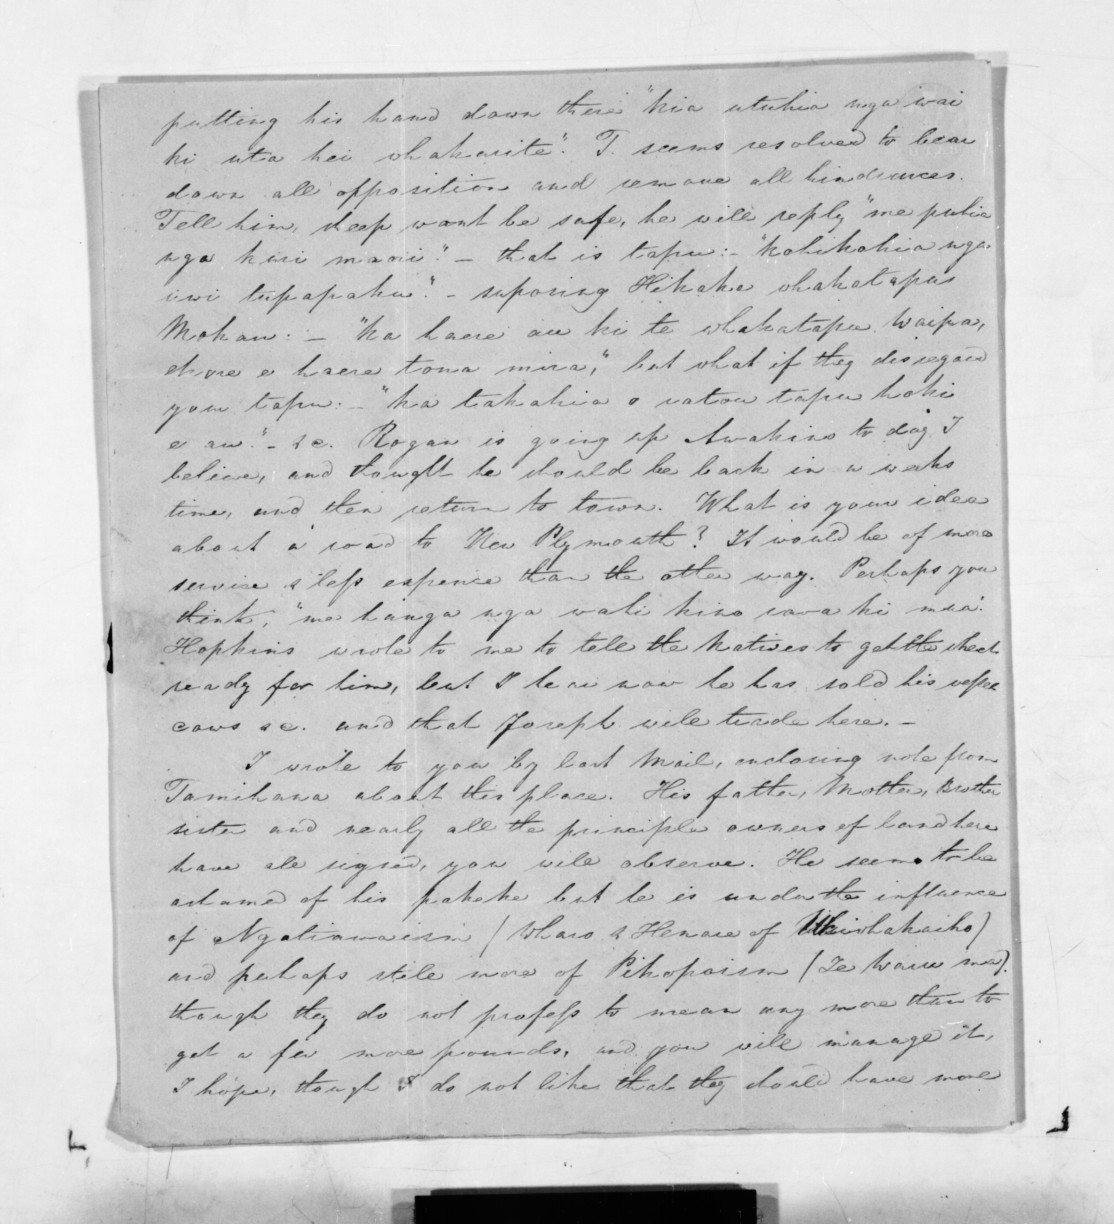 putting his hand down there "kia utuhia nga wai
ki uta hei whakarite". T. seems resolved to bear
down all opposition and remove all hindrances.
Tell him, sheep wont be safe, he will reply "me puhia
nga kuri maori". – that is tapu: – "kohikohia nga
iwi tupapaku". – suposing Hikaka whakatapus
Mokau: – "ka haere au ki te whakatapu Waipa,
ekore e haere tona mira," but what if they disregard
your tapu. – "ka takahia o ratou tapu hoki
e au". – &c. Rogan is going up Awakino to day I
believe, and thought he should be back in a weeks
time, and then return to town. What is your idea
about a road to New Plymouth? It would be of more
service & less expence than the other way. Perhaps you
think, "me hanga nga wahi kino rava ki mua".
Hopkins wrote to me to tell the Natives to get the wheat
ready for him, but I hear now he has sold his vessel
cows &c. and that Joseph will trade here. –
I wrote to you by last Mail, enclosing note from
Tamihana about this place. His father, Mother, Brother
sister and nearly all the principle owners of land here
have all signed, you will observe. He seems to be
ashamed of his pakeke but he is under the influence
of Ngatiawaism (Wharo & Henare of Whakaiho)
and perhaps still more of Pikopoism (Te Wairu ma).
though they do not profess to mean any more than to
get a few more pounds, and you will manage it,
I hope, though I do not like that they should have more